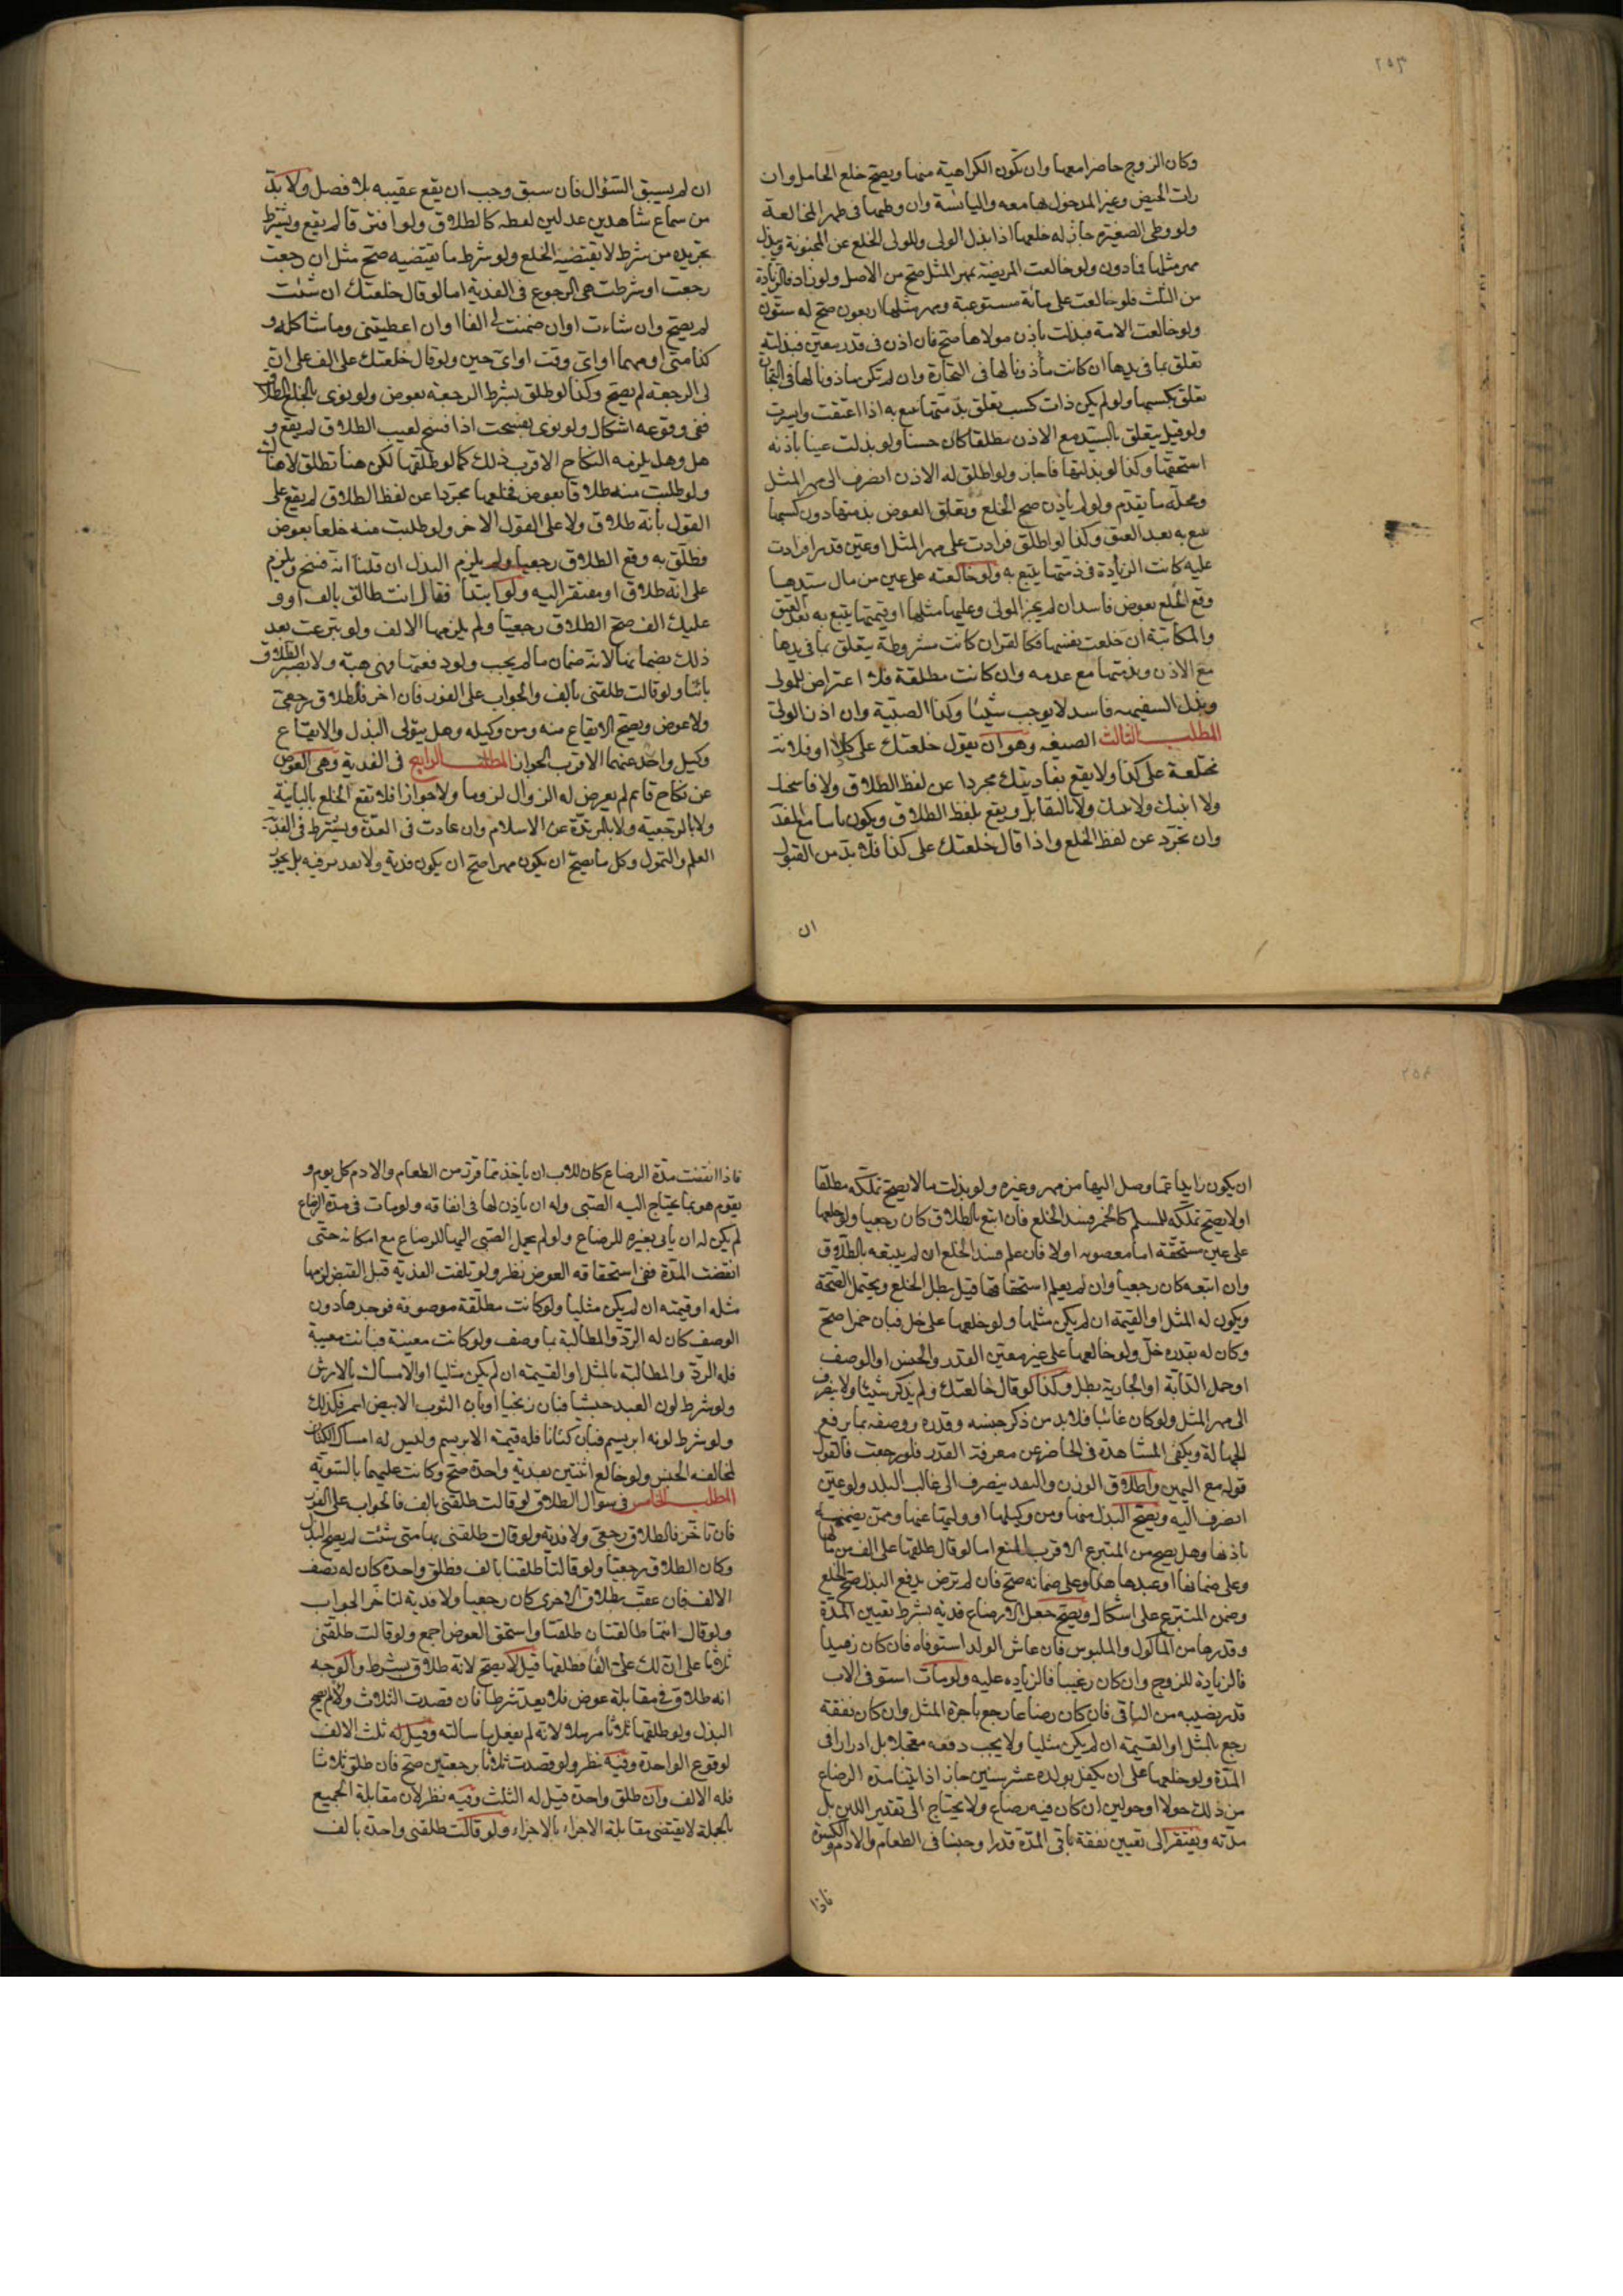 ٢٥٣
وكان الزوج حاضرا معها وان تكون الكراهية منها ويصح خلع الحامل وان
رات الحيض وغير المدخول بها معه واليائسة وان وطيها فى طهر المخالعة
ولو وطى الصغيرة جاز له خلعها اذا بذل الولى وللولى الخلع عن المجنونة ويبذل
مهر مثلها فمادون ولو خالعت المريضة بمهر المثل صح من الاصل ولو زاد فالزيادة
من الثلث فلو خالعت على مائة مستوعبة ومهر مثلها اربعون صح له ستون
ولو خالعت الامة فبذلت باذن مولاها صح فان اذن فى قدر معين فبذلته
تعلق بما فى يدها ان كانت مأذونا لها فى التجارة وان لم تكن ماذونا لها فى التجارة
تعلق بكسبها ولو لم يكن ذات كسب تعلق بذمتها تتبع به اذا اعتقت وايسرت
ولو قيل يتعلق بالسيد مع الاذن مطلقا كان حسنا ولو بذلت عينا باذنه
استحقها وكذا لو بذلتها فاجاز ولو اطلق له الاذن انصرف الى مهر المثل
ومحله ما يقدم ولو لم ياذن صح الخلع وتعلق العوض بذمتها دون كسبها
تتبع به بعد العتق وكذا لو اطلق فزادت على مهر المثل او عين قدرا فزادت
عليه كانت الزيادة فى ذمتها يتبع به ولو خالعته على عين من مال سيدها
وقع الخلع بعوض فاسد ان لم يجز المولى وعليها مثلها او قيمتها يتبع به بعد العتق
والمكاتبة ان خلعت نفسها فكالقن ان كانت مشروطة يتعلق بما فى يدها
مع الاذن وبذمتها مع عدمه وان كانت مطلقة فلا اعتراض للمولى
وبذل السفيهه فاسد لا يوجب شيئا وكذا الصبية وان اذن الولى
المطلب الثالث الصيغه وهو ان يقول خلعتك على كذا او فلانة
مختلعة على كذا ولا يقع بفاديتك مجردا عن لفظ الطلاق ولا فاسختك
ولا ابنتك ولا بتتك ولا بالتقايل ويقع بلفظ الطلاق ويكون باينا مع الفدية
وان تجرد عن لفظ الخلع واذا قال خلعتك على كذا فلا بد من القبول
ان
ان لم يسبق السؤال فان سبق وجب ان يقع عقيبه بلا فصل ولا بد
من سماع شاهدين عدلين لفظه كالطلاق ولو افترقا لم يقع ويشترط
تجريده من شرط لا يقتضيه الخلع ولو شرط ما يقتضيه صح مثل ان رجعت
رجعت او شرطت هى الرجوع فى الفدية اما لو قال خلعتك ان شئت
لم يصح وان شاءت او ان ضمنت لى الفا او ان اعطيتنى وما شاكله و
كذا متى او مهما او اى وقت او اى حين ولو قال خلعتك على الف على ان
لى الرجعة لم يصح وكذا لو طلق بشرط الرجعة بعوض ولو نوى بالخلع الطلاق
ففى وقوعه اشكال ولو نوى بفسخت اذا فسخ لعيب الطلاق لم يقع و
هل وهل يلزمه النكاح الاقرب ذلك كما لو طلقها لكن هنا تطلق لا هناك
ولو طلبت منه طلاقا بعوض فخلعها مجردا عن لفظ الطلاق لم يقع على
القول بأنه طلاق ولا على القول الاخر ولو طلبت منه خلعا بعوض
فطلق به وقع الطلاق رجعيا ولم يلزم البذل ان قلنا انه فسخ ويلزم
على انه طلاق او مفتقر اليه ولو ابتدأ فقال انت طالق بالف او و
عليك الف صح الطلاق رجعيا ولم يلزمها الالف ولو تبرعت بعد
ذلك بضمانها لانه ضمان مالم يجب ولو دفعتها فهى هبة ولا يصير الطلاق
بائنا ولو قالت طلقنى بالف والجواب على الفور فان اخر فالطلاق رجعى
ولا عوض ويصح الايقاع منه ومن وكيله وهل يتولى البذل والايقاع
وكيل واحد عنهما الاقرب الجواز المطلب الرابع فى الفدية وهى العوض
عن نكاح قائم لم يعرض له الزوال لزوما ولا جوازا فلا تقع الخلع بالباينة
ولا بالرجعية ولا بالمرتدة عن الاسلام وان عادت فى العدة ويشترط فى الفدية
العلم والتمول وكل ما يصح ان يكون مهرا صح ان يكون فدية ولا تقدير فيه بل يجوز
٢٥٤
ان يكون زايدا عما وصل اليها من مهر وغيره ولو بذلت مالا يصح تملكه مطلقا
او لا يصح تملكه للمسلم كالخمر فسد الخلع فان اتبع بالطلاق كان رجعيا ولو خلعها
على عين مستحقة اما مغصوبه او لا فان علم فسد الخلع ان لم يتبعه بالطلاق
وان اتبعه كان رجعيا وان لم يعلم استحقاقها قيل يبطل الخلع ويحتمل الصحة
ويكون له المثل او القيمة ان لم يكن مثلها ولو خلعها على خل فبان خمرا صح
وكان له بقدره خل ولو خالعها على غير معين القدر والجنس او الوصف
او حمل الدابة او الجارية بطل وكذا لو قال خالعتك ولم يذكر شيئا ولا ينصرف
الى مهر المثل ولو كان غائبا فلابد من ذكر جنسه وقدره ووصفه بما يرفع
الجهالة ويكفى المشاهدة فى الحاضر عن معرفة القدر فلو رجعت فالقول
قوله مع اليمين واطلاق الوزن والنقد ينصرف الى غالب البلد ولو عين
انصرف اليه ويصح البذل منها ومن وكيلها او وليها عنها وممن يضمنه
باذنها وهل يصح من المتبرع الاقرب المنع اما لو قال طلقها على الف من مالها
وعلى ضمانها او عبدها هذا وعلى ضمانه صح فان لم ترض بدفع البذل صح الخلع
وضمن المتبرع على اشكال ويصح جعل الارضاع فدية بشرط تعيين المدة
وقدرها من المأكول والملبوس فان عاش الولد استوفاه فان كان زهيدا
فالزيادة للزوج وان كان رغيبا فالزياده عليه ولو مات استوفى الاب
قدر نصيبه من الباقى فان كان رضاعا رجع باجرة المثل وان كان نفقة
رجع بالمثل او القيمة ان لم يكن مثليا ولا يجب دفعه معجلا بل ادرارا فى
المدة ولو خلعها على ان يكفل بولده عشر سنين جاز اذا بينا مدة الرضاع
من ذلك حولا او حولين ان كان فيه رضاع ولا يحتاج الى تقدير اللبن بل
مدته ويفتقر الى تعيين نفقة باقى المدة قدرا وجنسا فى الطعام والادم والكسوة
فاذا
فاذا انقضت مدة الرضاع كان للاب ان ياخذ ما قدر من الطعام والادم كل يوم و
يقوم هو بما يحتاج اليه الصبى وله ان ياذن لها فى انفاقه ولو مات فى مدة الرضاع
لم يكن له ان ياتى بغيره للرضاع ولو لم يحمل الصبى اليها للرضاع مع امكانه حتى
انقضت المدة ففى استحقاقه العوض نظر ولو تلفت الفدية قبل القبض لزمها
مثله او قيمته ان لم يكن مثليا ولو كانت مطلقة موصوفة فوجدها دون
الوصف كان له الرد والمطالبة بما وصف ولو كانت معينة فبانت معيبة
فله الرد والمطالبة بالمثل او القيمة ان لم يكن مثليا او الامساك بالارش
ولو شرط لون العبد حبشيا فبان زنجيا او بان الثوب الابيض اسمر فكذلك
ولو شرط لونه ابريسم فبان كتانا فله قيمة الابريسم وليس له امساك الكتان
لمخالفه الجنس ولو خالع اثنتين بفدية واحدة صح وكانت عليهما بالسوية
المطلب الخامس فى سوال الطلاق لو قالت طلقنى بالف فالجواب على الفور
فان تاخر فالطلاق رجعى ولا فدية ولو قالت طلقنى بها متى شئت لم يصح البذل
وكان الطلاق رجعيا ولو قالتا طلقنا بالف فطلق واحدة كان له نصف
الالف فان عقب بطلاق الاخرى كان رجعيا ولا فدية لتاخر الجواب
ولو قال انتما طالقتان طلقتا واستحق العوض اجمع ولو قالت طلقنى
ثلاثا على ان لك على الفا فطلقها قيل لا يصح لانه طلاق بشرط والوجه
انه طلاق فى مقابلة عوض فلا يعد شرطا فان قصدت الثلاث ولاء لم يصح
البذل ولو طلقها ثلاثا مرسلا لانه لم يفعل ما سالته وقيل له ثلث الالف
لوقوع الواحدة وفيه نظر ولو قصدت ثلاثا برجعتين صح فان طلق ثلاثا
فله الالف وان طلق واحدة قيل له الثلث وفيه نظر لان مقابلة الجميع
بالجملة لا يقتضى مقابلة الاجزاء بالاجزاء ولو قالت طلقنى واحدة بالف